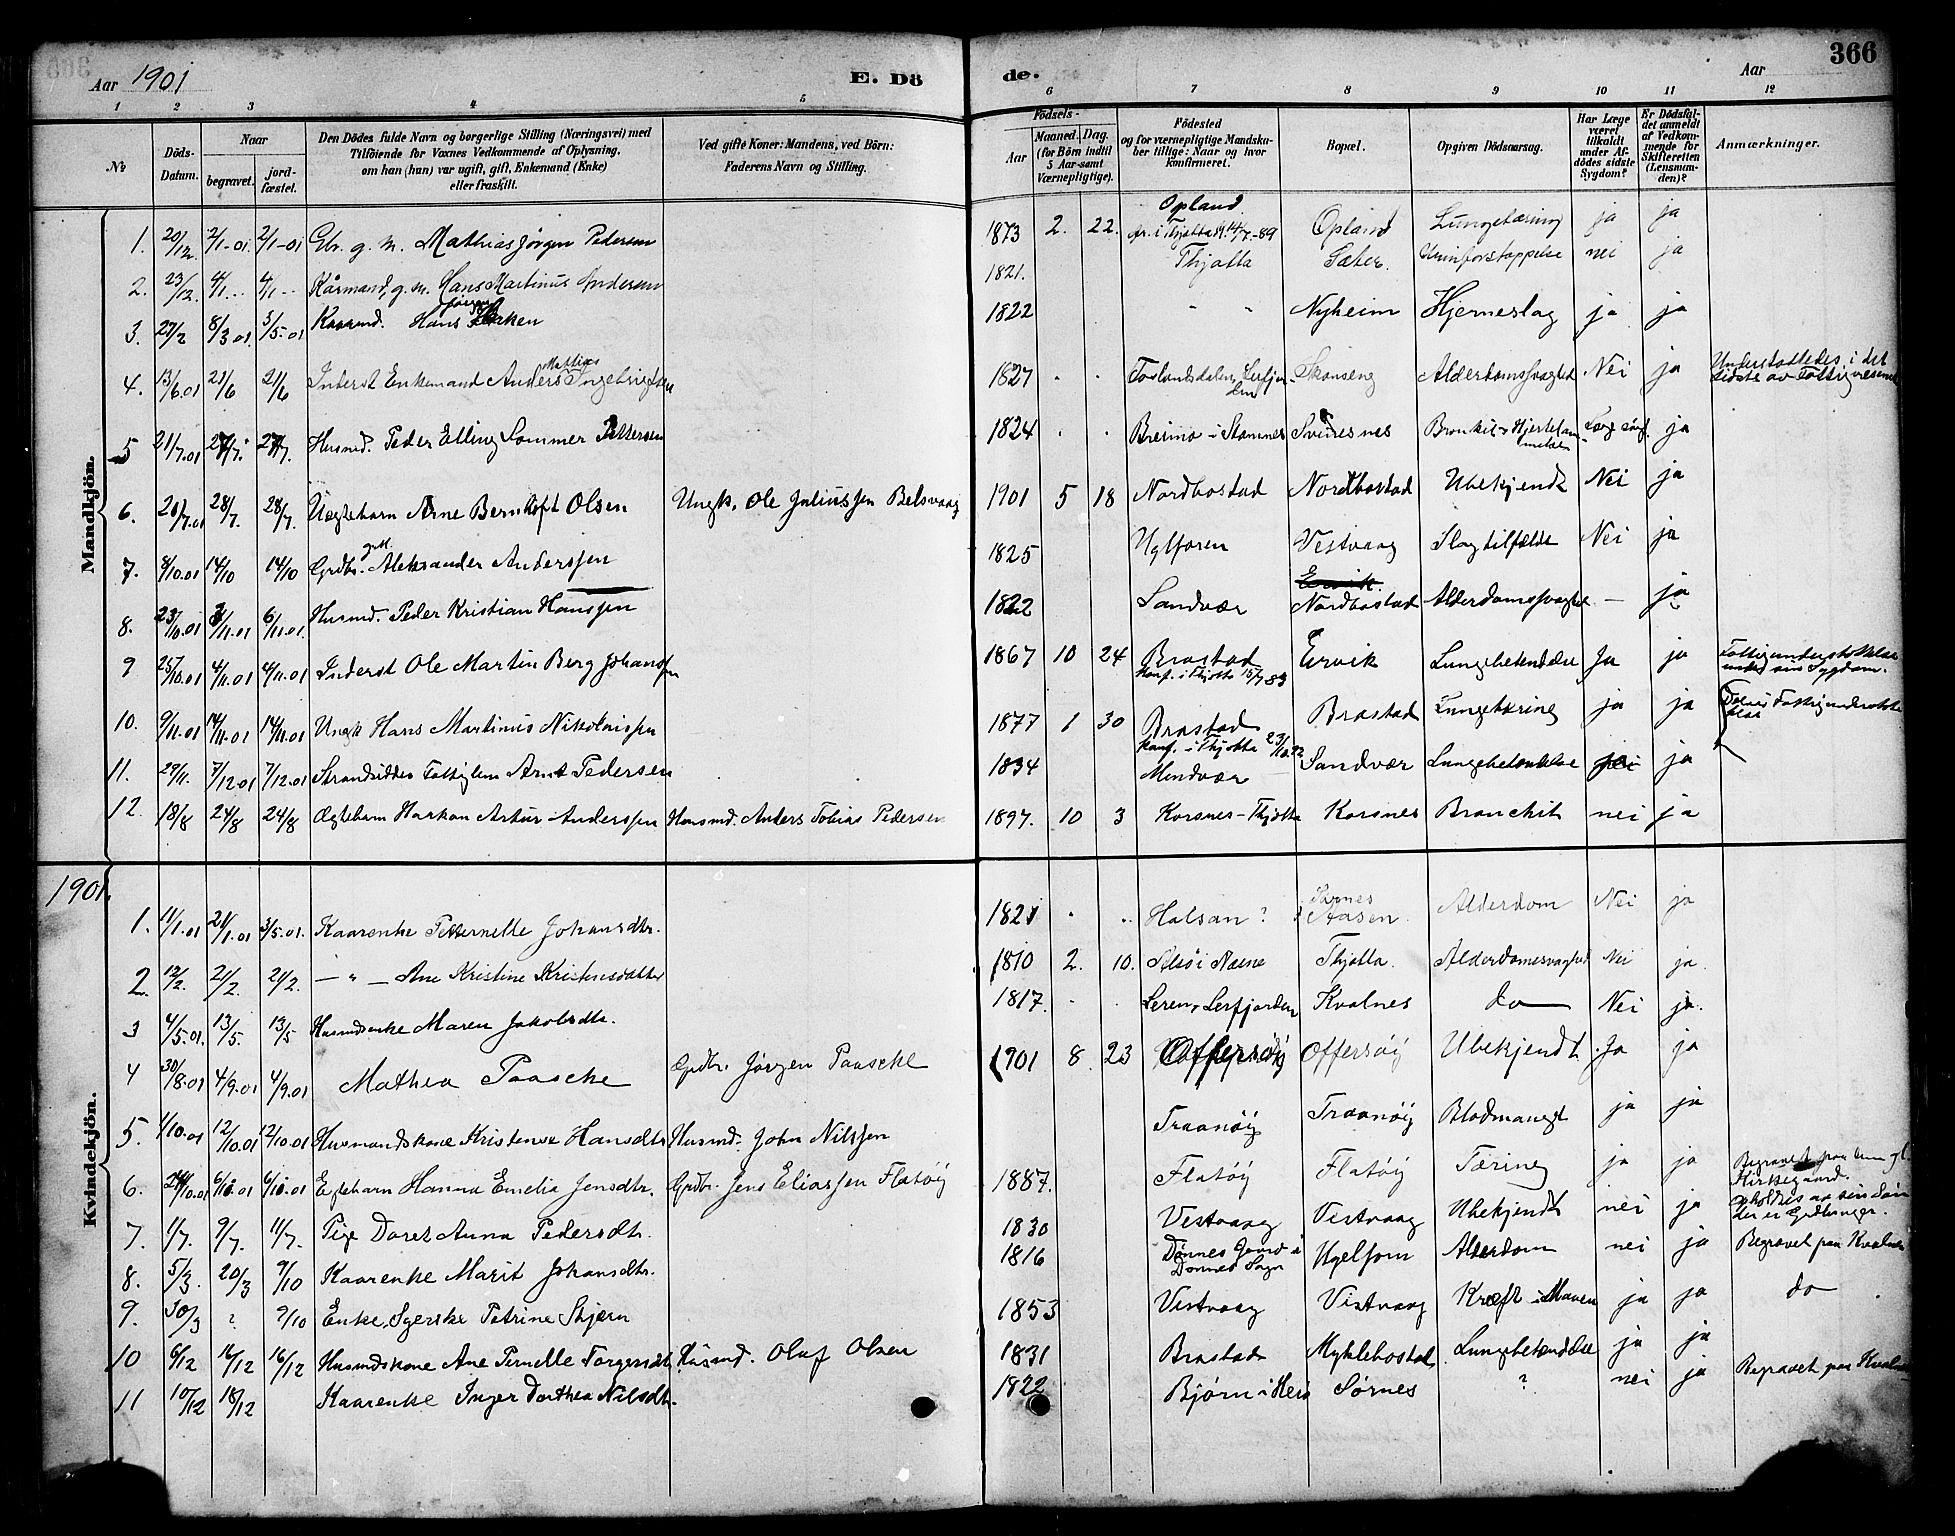 Aar 1901 E. Dö de. Aar 366
1 2 3 4 5 6 7 8 9 10 11 12
No
Döds-Datum.
Naar begravet. jord-fæstet.
Den Dödes fulde Navn og borgerlige Stilling (Næringsvei) med
Tilföiende for Voxnes Vedkommende af Oplysning,
om han (hun) var ugift, gift, Enkemand (Enke)
eller fraskilt.
Ved gifte Koner: Mandens, ved Börn:
Faderens Navn og Stilling.
Födsels-
Aar Maaned. Dag.
(for Börn indtil
5 Aar samt
Værnepligtige).
Födested
og for værnepligtige Mandsku-
ber tillige: Naar og hvor
konfirmeret.
Bopæl.
Opgiven Dödsaarsag.
Har Læge
været
tilkaldt
under Af-
dödes sidste
Sygdom?
Er Dödsfal-
det anmeldt
af Vedkom-
mende for
Skifteretten
(Lensman-
den)?
Anmærkninger.
Mandkjön.
1. 20/12. 2/1-01 2/1-01 Gbr. g. m. Mathias Jörgen Pedersen 1873 2. 22. Opland Opland Lungetæring ja ja
2. 23/12. 4/1 4/1 Kårmand, g. m. Hans Martinus Andersen 1821. Thjøtta Sæter. Urinforstoppelse nei ja
3. 27/2 8/3 01 3/5-01 Kaarmd. Hans 1822 " " Nyheim Hjerneslag ja ja
4. 13/6.01 21/6 21/6 Inderst Enkemand Anders Mathias Ingebrigtsen 1827 Skonseng Alderdomssvaghed Nei ja Understøttedes i det sidste av Fattigvæsenet
5 21/7.01 27/7. 27/7. Husmd. Peder Elling Sommer Pettersen 1824 Breimo i Stamnes Svinesnes Bronkit ja
6. 20/7.01 28/7. 28/7. Uægtebarn Arne Bernhoft Olsen Ungk. Ole Juliussen Belsvaag 1901 5 18 Nordbostad Nordbostad Ubekjendt Nei ja
7. 8/10.01 14/10 14/10 Grdbr. Aleksander Anderssen 1825 Uglforen Vistvaag Slagtilfælde Nei ja
8. 23/10.01 3/11.01 6/11.01. Husmd. Peder Kristian Hanssen 1822 Sandvær Nordbostad Alderdomssvaghed — ja
9 25/10.01 4/11.01 4/11.01 Inderst Ole Martin Berg Johanssen 1867 10 24 Brastad konf. i Thjøtta 15/7 83 Ervik Lungebetændelse Ja ja Fattigunderstøttelse under sin Sygdom.
10. 9/11.01 14/11.01 14/11.01 Ungk Hans Martinus Nikolaissen 1877 1 30 Brastad konf. i Thjøtta Brastad Lungetæring ja ja
11. 29/11. 7/12.01 7/12.01 Strandsidder Fattiglem Arnt Pedersen 1834 Mindvær Sandvær Lungebetændelse ja
12. 18/8 24/8 24/8 Ægtebarn Haakon Artur Anderssen Husmd. Anders Tobias Pedersen 1897. 10 3 Korsnes-Thjøtta Korsnes Bronchit nei ja
1901.
Kvindekjön.
1. 11/1.01 21/1.01 3/5.01. Kaarenke Petternelle Johansdtr. 1821 Halsan? Aasen. Alderdom Nei ja
2. 12/2. 21/2. 21/2. — " — Ane Kristine Kristensdatter 1810 2. 10. Thjøtta. Alderdomssvaghed Nei ja.
3 4/5.01. 13/5. 13/5 Husmdsenke Maren Jakobsdtr. 1817. Leren, Lerfjorden Kvalnes do Nei ja.
4 30/8.01 4/9.01 4/9.01 Mathea Paasche Grdbr. Jörgen Paasche 1901 8. 23 Offersöy Offersöy Ubekjendt Ja ja
5. 1/10.01 12/10.01 12/10.01 Husmandskone Kristense Hansdtr Husmd. John Nilssen Traanöy Traanöy Blodmangel ja ja
6. 6/10.01 6/10.01 Egtebarn Hanna Emelia Jensdtr. Grdbr. Jens Eliassen Flatöy 1887. Flatöy Flatöy Tæring ja ja
7. 1/7. 9/7. 11/7. Pige Doret Anna Pedersdtr. 1830 Vestvaag Vistvaag Ubekjendt nei ja
8. 5/3. 20/3 9/10 Kaarenke Marit Johansdtr. 1816 Dönnes Sogn Ugelfom Alderdom nei ja Begravet paa Kvalnes
9. 30/3 ? 9/10 Enke, Sygerske Petrine Skjærn 1853 Vistvaag Vistvaag Kræft i Maven ja ja do
10 6/12 16/12 16/12 Husmdskone Ane Pernelle Torgersdtr. Husmd. Oluf Olsen 1831 Brastad Myklebostad Lungebetændelse ja ja
11 10/12 18/12 Kaarenke Inger Dorthea Nilsdtr. 1822 Björn i Herö Sørnes ? nei ja Begravet paa Kvalnes